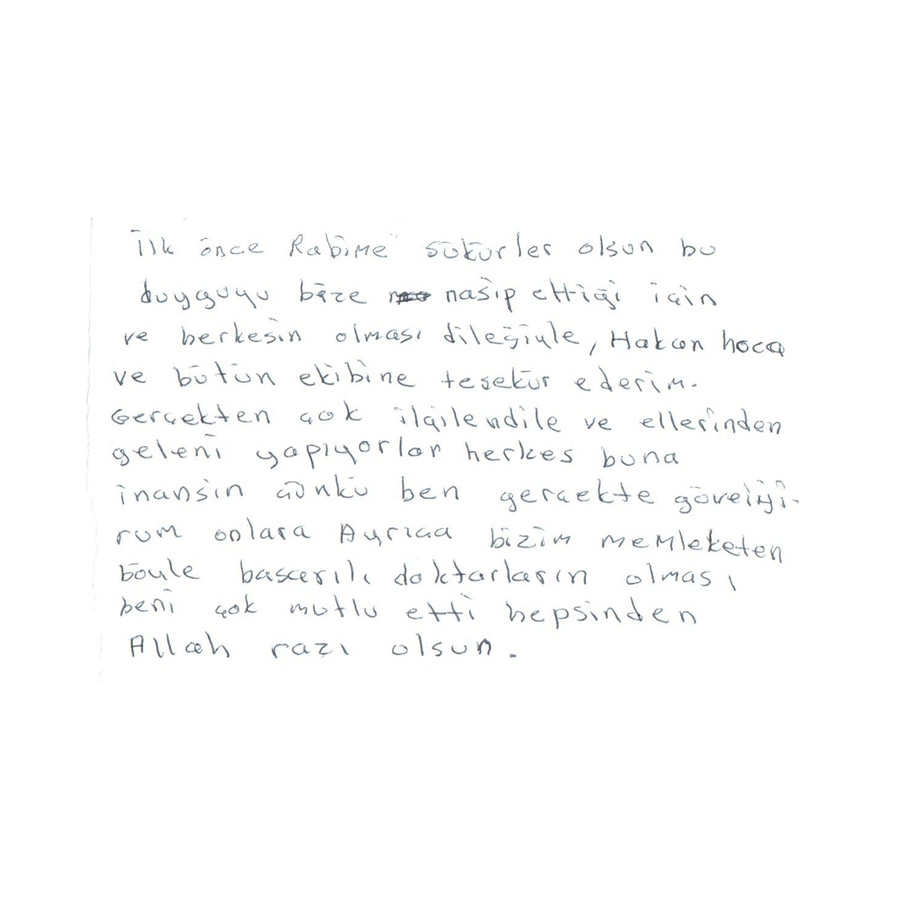 İlk önce Rabime şükürler olsun bu
duyguyu bize nasip ettiği için
ve herkesin olması dileğiyle, Hakan hoca
ve bütün ekibine teşekür ederim.
Gerçekten çok ilgilendile ve ellerinden
geleni yapıyorlar herkes buna
inansın çünkü ben gerçekte
rum onlara Ayrıca bizim memleketen
böyle başarılı doktarların olması
beni çok mutlu etti hepsinden
Allah razı olsun.